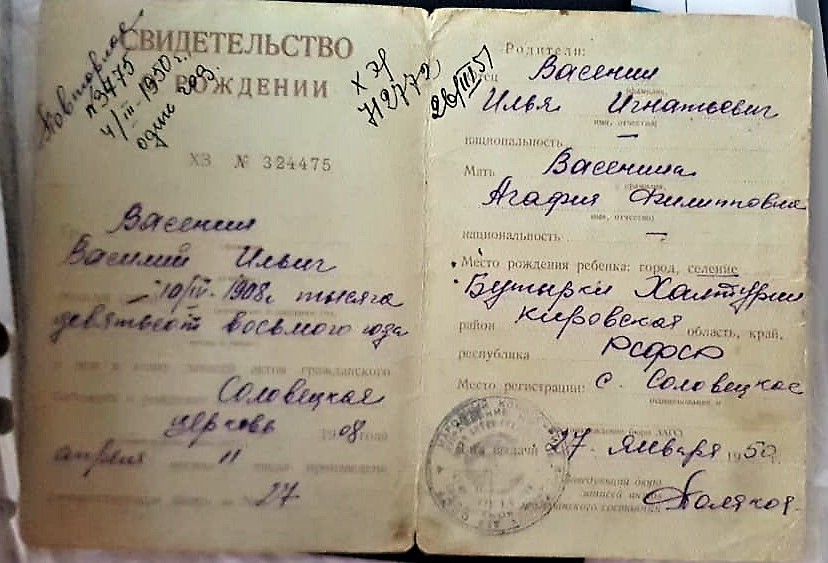 Повторное
№ 3475
4/III-1950 г.
один
СВИДЕТЕЛЬСТВО
О РОЖДЕНИИ
712772
26/III 51
ХЗ № 324475
Васенин
Василий Ильич
10/IV-1908г тысяча
девятьсот восьмого года
записей актов гражданского
Соловецкая
церковь 1908 года
апреля месяца 11 числа произведена
27
Родители:
Отец Васенин
фамилия,
Илья Игнатьевич
имя, отчество
национальность —
Мать Васенина
фамилия,
Агафия Филипповна
имя, отчество
национальность —
Место рождения ребенка: город, селение
Бутырки Халтурин
район Кировская область, край,
республика РСФСР
Место регистрации: с. Соловецкое
бюро ЗАГС
Дата выдачи 27 января 1950 г.
Заведующий бюро
записей актов
гражданского состояния